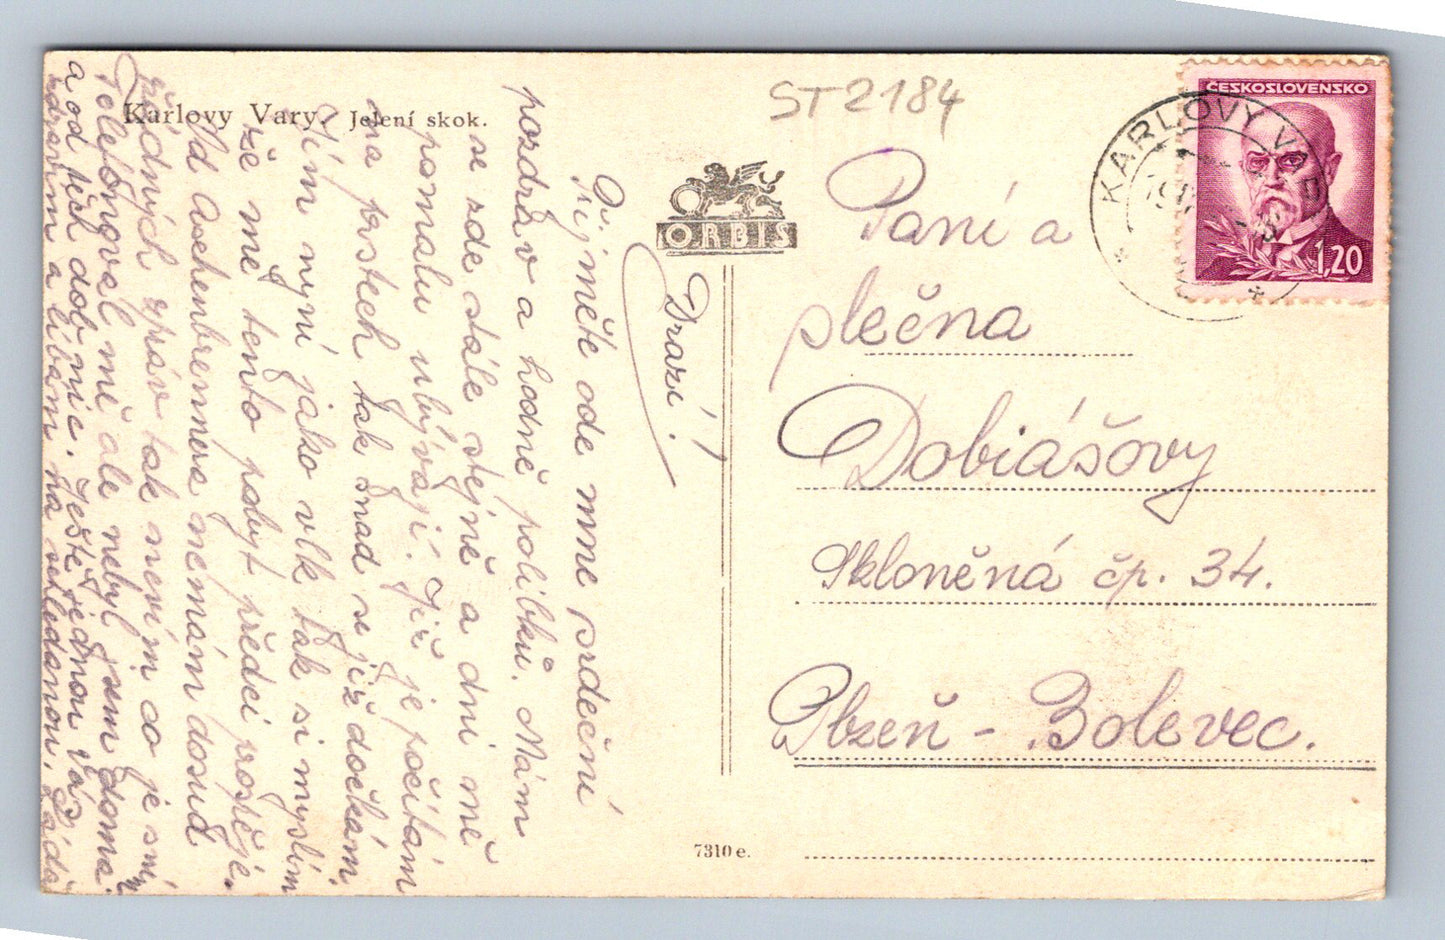 Karlovy Vary. Jelení skok.
ST 2184
ORBIS
ČESKOSLOVENSKO
1,20
KARLOVY VARY
Drazí!
Přijměte ode mne srdeční
pozdrav a hodně polibků. Mám
se zde stále stejně a dni mě
pomalu ubývají. Již je počítám
na prstech tak snad se již dočkám.
Jím nyní jako vlk tak si myslím
že mě tento pobyt předci prospěje.
Od Aschenbrennera nemám dosud
žádných zpráv tak nevím co je s ním
Telefonoval mě ale nebyl jsem doma.
a od těch dob nic. Ještě jednou Vás
zdravím a líbám na shledanou. Láďa
Paní a
plečna
Dobiášovy
Skloněná čp. 34.
Plzeň - Bolevec.
7310 e.